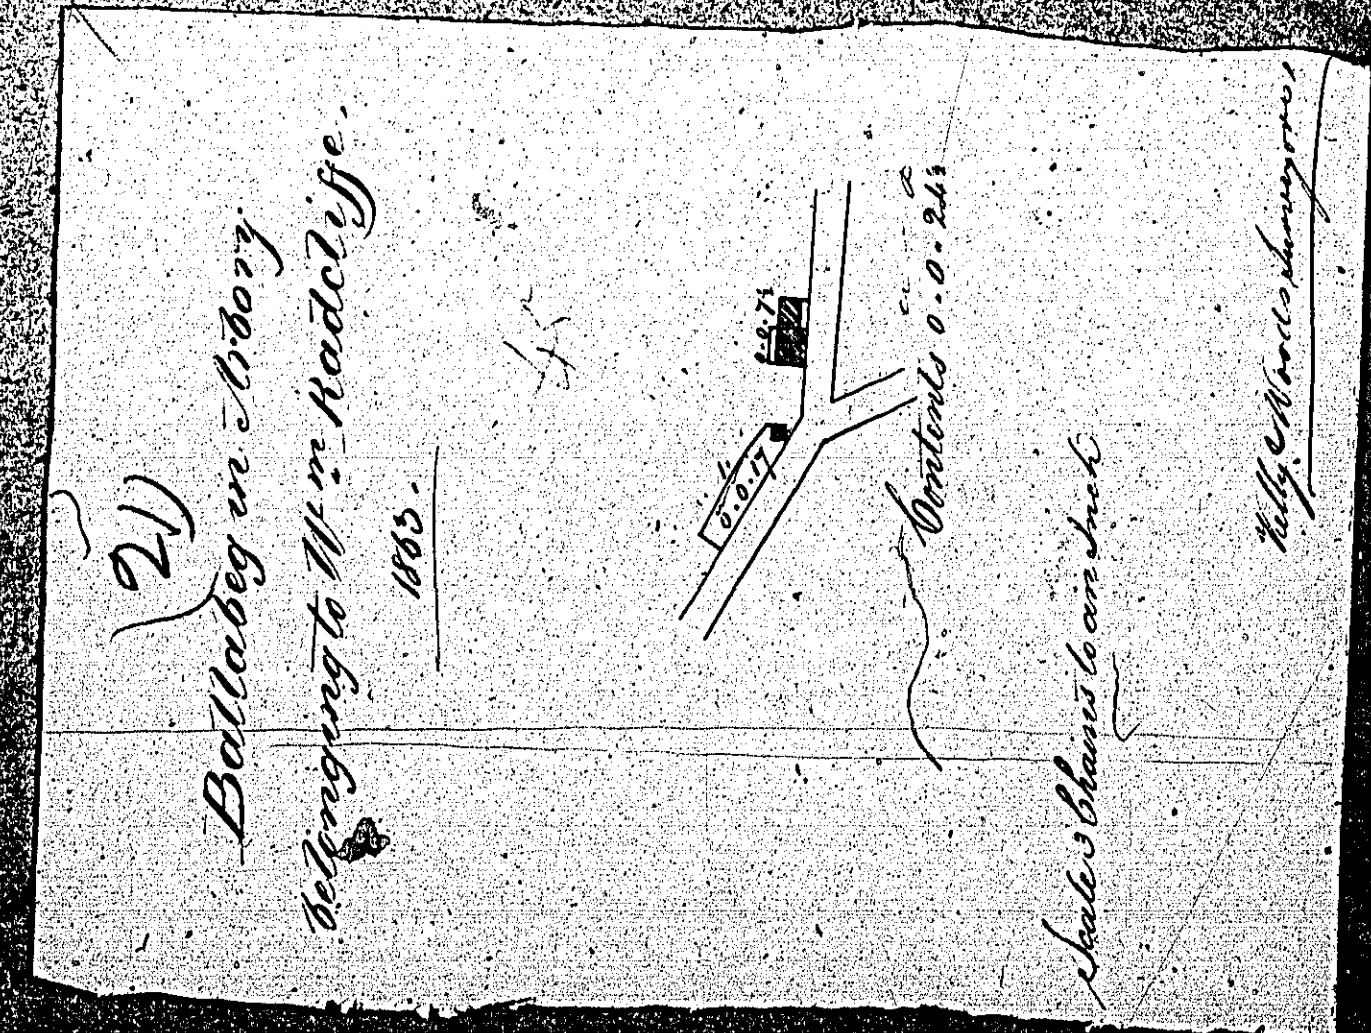 21
Ballabeg in Arbory
belonging to Wm Radcliffe.
1863.
0.0.7½
0.0.17
Contents 0.0.24½
Scale 3 Chains to an Inch
Kelly & Woods Surveyors